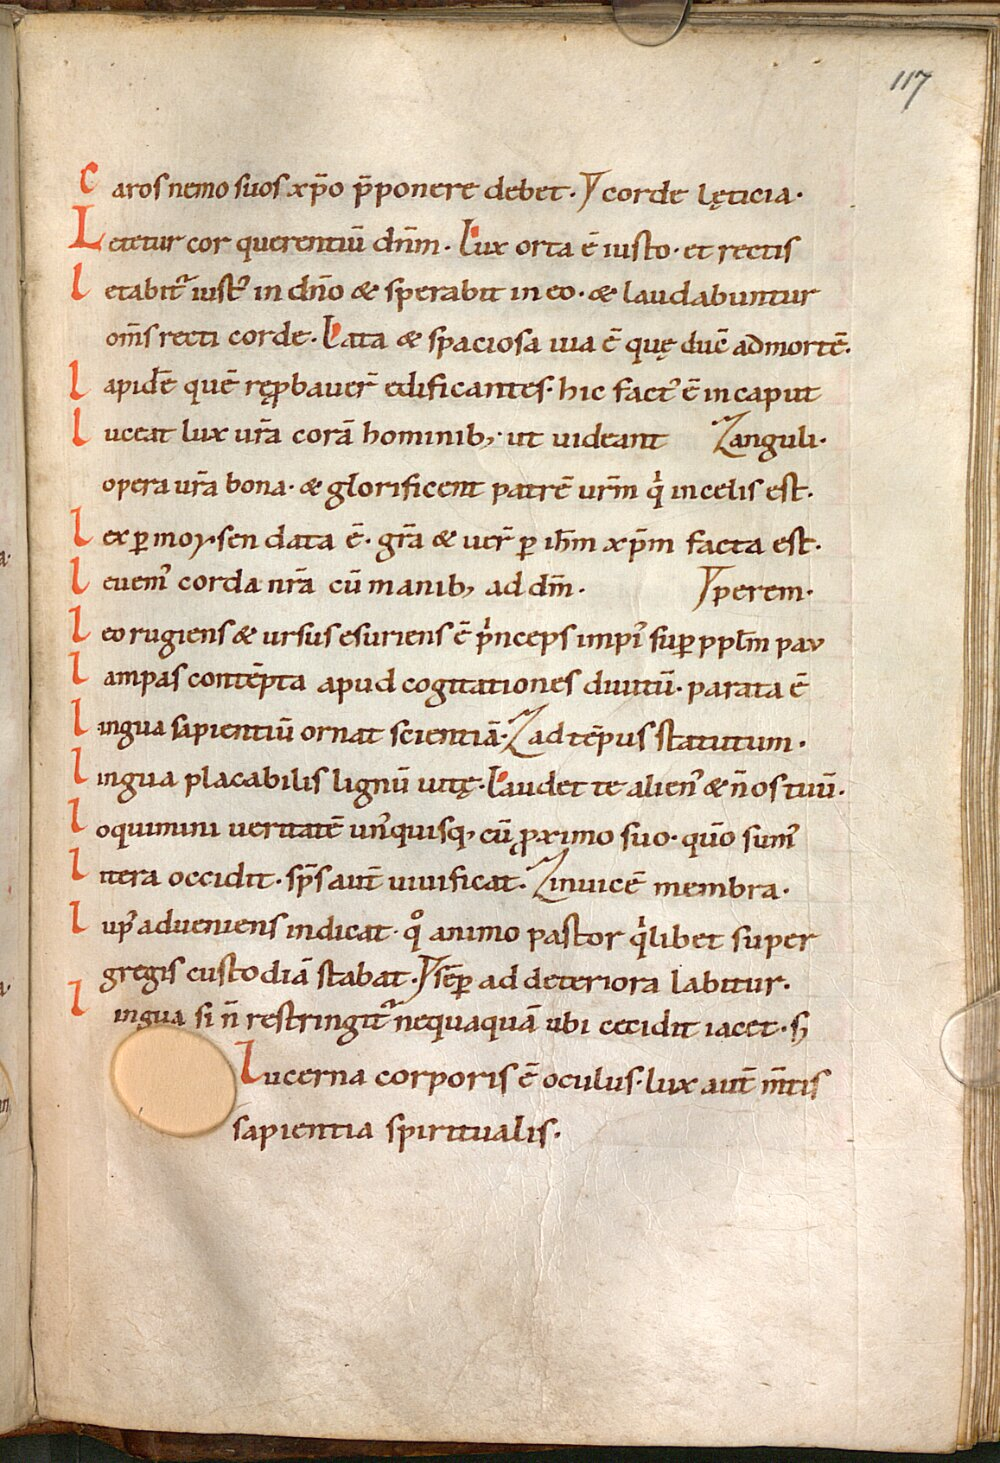 117
Caros nemo suos xp̄o p̄ponere debet. corde lęticia.
Letetur cor querentiū dn̄m. Lux orta ē iusto. et rectis
Letabit᷑ iust᾽ in dn̄o & sperabit in eo. & laudabuntur
om̄s recti corde. Lata & spaciosa uia ē quę duc̄ ad mortē.
Lapidē quē rep̱bauer̄ edificantes. hic fact᾽ ē in caput
Luceat lux ur̄a corā hominib; ut uideant anguli.
opera ur̄a bona. & glorificent patrē urm̄ qͥ in celis est.
Lex ꝑ moysen data ē. gr̄a & uer̄ ꝑ ih̄m xp̄m facta est.
Leuem᾽ corda nr̄a cū manib; ad dm̄. perem.
Leo rugiens & ursus esuriens ē pͥnceps impi᾽ suꝑ ppl̄m pau
Lampas contēpta apud cogitationes diuitū. parata ē
Lingua sapientiū ornat scientiā. ad tēpus statutum.
Lingua placabilis lignū uitę. Laudet te alien᾽ & n̄ os tuū.
Loquimini ueritatē un᾽quisq; cū ꝓximo suo. quō sum᾽
Litera occidit. sp̄s aut̄ uiuificat. inuicē membra.
Lup᾽ adueniens indicat qͦ animo pastor qͥlibet super
gregis custodiā stabat. sēꝑ ad deteriora labitur.
Lingua si n̄ restringit᷑ nequaquā ubi cecidit iacet. s;
Lucerna corporis ē oculus. lux aut̄ m̄tis
sapientia spiritualis.